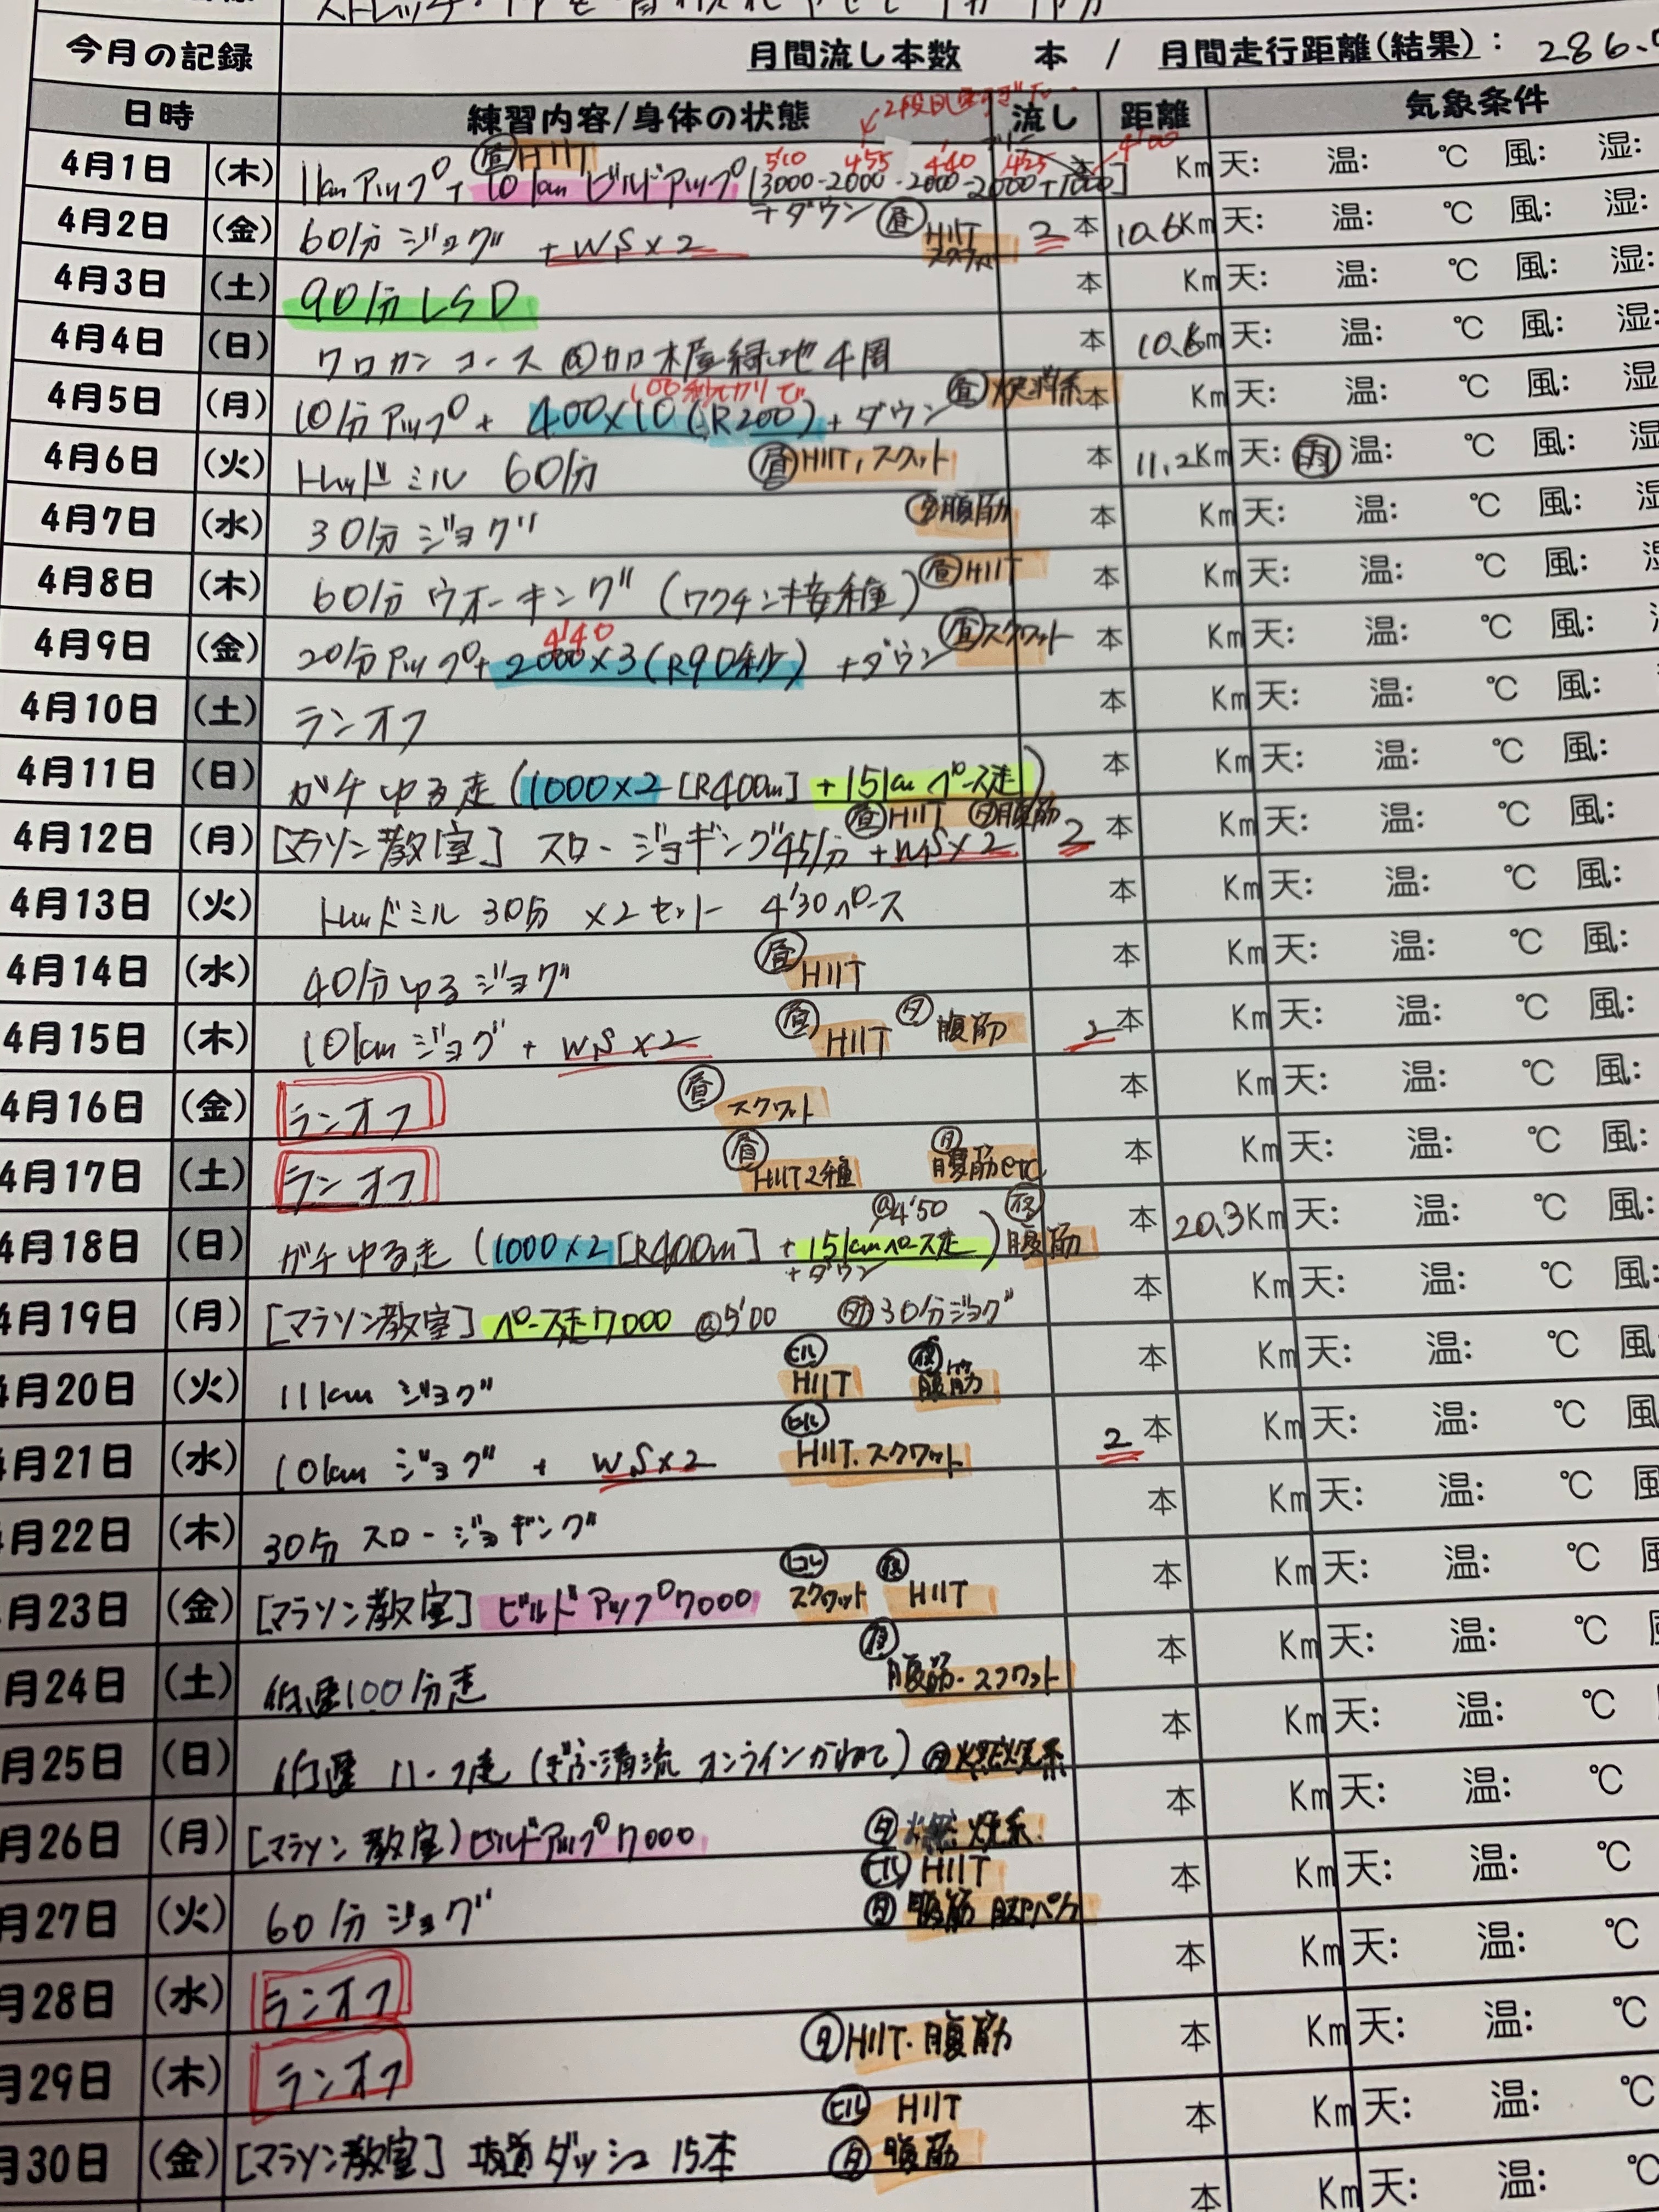 今月の記録 月間流し本数 本 / 月間走行距離(結果): 286.
日時 練習内容/身体の状態 流し 距離 気象条件
昼HIIT 5'10 4'55 4'40 4'25 4'00
4月1日 (木) 1kmアップ+10kmビルドアップ[3000-2000-2000-2000+1000] 本 Km 天: 温: ℃ 風: 湿:
+ダウン 昼HIIT スクワット
4月2日 (金) 60分ジョグ +W.S×2 2本 10.6Km 天: 温: ℃ 風: 湿:
4月3日 (土) 90分LSD 本 Km 天: 温: ℃ 風: 湿:
4月4日 (日) クロカンコース@加木屋緑地4周 本 10.6Km 天: 温: ℃ 風: 湿:
100秒切りで
4月5日 (月) 10分アップ+ 400×10(R200)+ダウン 昼燃焼系 本 Km 天: 温: ℃ 風: 湿
4月6日 (火) トレッドミル 60分 昼HIIT,スクワット 本 11.2Km 天:雨 温: ℃ 風: 湿
4月7日 (水) 30分ジョグ 夕腹筋 本 Km 天: 温: ℃ 風: 湿
4月8日 (木) 60分ウオーキング(ワクチン接種) 昼HIIT 本 Km 天: 温: ℃ 風:
4'40
4月9日 (金) 20分アップ+2000×3(R90秒) +ダウン 昼スクワット 本 Km 天: 温: ℃ 風:
4月10日 (土) ランオフ 本 Km 天: 温: ℃ 風:
4月11日 (日) ガチゆる走(1000×2[R400m]+15kmペース走) 本 Km 天: 温: ℃ 風:
昼HIIT 夕腹筋
4月12日 (月) [マラソン教室] スロージョギング45分+W.S×2 2本 Km 天: 温: ℃ 風:
4月13日 (火) トレッドミル 30分×2セット 4'30ペース 本 Km 天: 温: ℃ 風:
4月14日 (水) 40分ゆるジョグ 昼HIIT 本 Km 天: 温: ℃ 風:
4月15日 (木) 10kmジョグ+W.S×2 昼HIIT 夕腹筋 2本 Km 天: 温: ℃ 風:
4月16日 (金) ランオフ 昼スクワット 本 Km 天: 温: ℃ 風:
4月17日 (土) ランオフ 昼HIIT2種 夕腹筋etc 本 Km 天: 温: ℃ 風:
@4'50
4月18日 (日) ガチゆる走(1000×2[R400m]+15kmペース走) 腹筋 本 20.3Km 天: 温: ℃ 風:
+ダウン
4月19日 (月) [マラソン教室]ペース走7000 @5'00 30分ジョグ 本 Km 天: 温: ℃ 風:
4月20日 (火) 11kmジョグ ヒルHIIT 夜腹筋 本 Km 天: 温: ℃ 風:
4月21日 (水) 10kmジョグ + W.S×2 ヒルHIIT.スクワット 2本 Km 天: 温: ℃ 風
月22日 (木) 30分スロージョギング 本 Km 天: 温: ℃
月23日 (金) [マラソン教室]ビルドアップ7000 ヒルスクワット 夜HIIT 本 Km 天: 温: ℃
月24日 (土) 低速100分走 夜腹筋・スクワット 本 Km 天: 温: ℃
月25日 (日) 低速ハーフ走(ぎふ清流オンラインかねて) 夕燃焼系 本 Km 天: 温: ℃
月26日 (月) [マラソン教室)ビルドアップ7000 夕燃焼系 本 Km 天: 温: ℃
月27日 (火) 60分ジョグ ヒルHIIT 夕腹筋 足パカ 本 Km 天: 温: ℃
月28日 (水) ランオフ 本 Km 天: 温: ℃
月29日 (木) ランオフ 夕HIIT.腹筋 本 Km 天: 温: ℃
月30日 (金) [マラソン教室] 坂道ダッシュ 15本 ヒルHIIT 夕腹筋 本 Km 天: 温: ℃